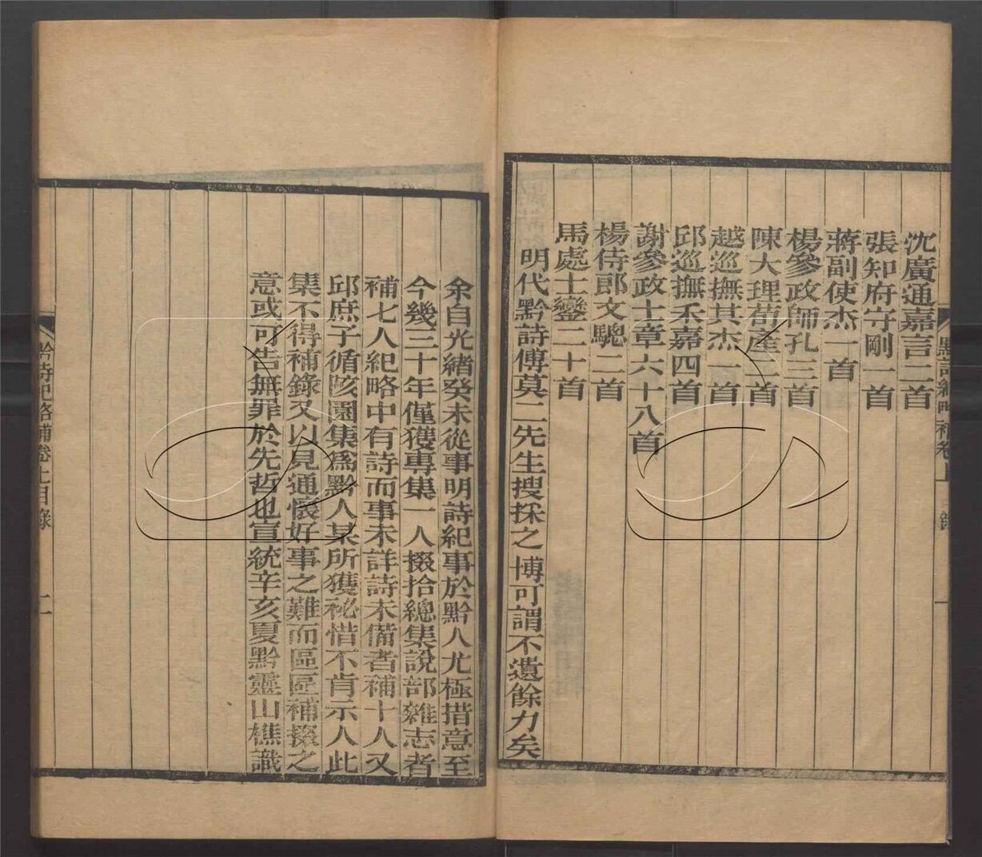 沈廣通嘉言二首
張知府守剛一首
蔣副使杰一首
楊參政師孔三首
陳大理舊產二首
越巡撫其杰一首
邱巡撫禾嘉四首
謝參政士章六十八首
楊侍郎文驄二首
馬處士鑾二十首
明代黔詩傅莫二先生搜採之博可謂不遺餘力矣
余自光緒癸未從事明詩紀事於黔人尤極措意至
今幾三十年僅獲專集一人掇拾總集說部雜志者
補七人紀略中有詩而事未詳詩未備者補十人又
邱庶子循陔園集為黔人某所獲祕惜不肯示人此
集不得補錄又以見通懷好事之難而區區補掇之
意或可告無罪於先哲也宣統辛亥夏黔靈山樵識
黔詩紀略補卷上目錄
二